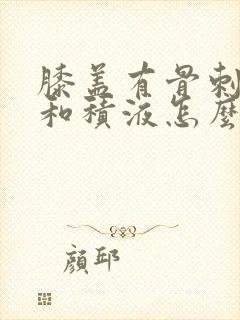 膝盖有骨刺
和積液怎麼
顔邱